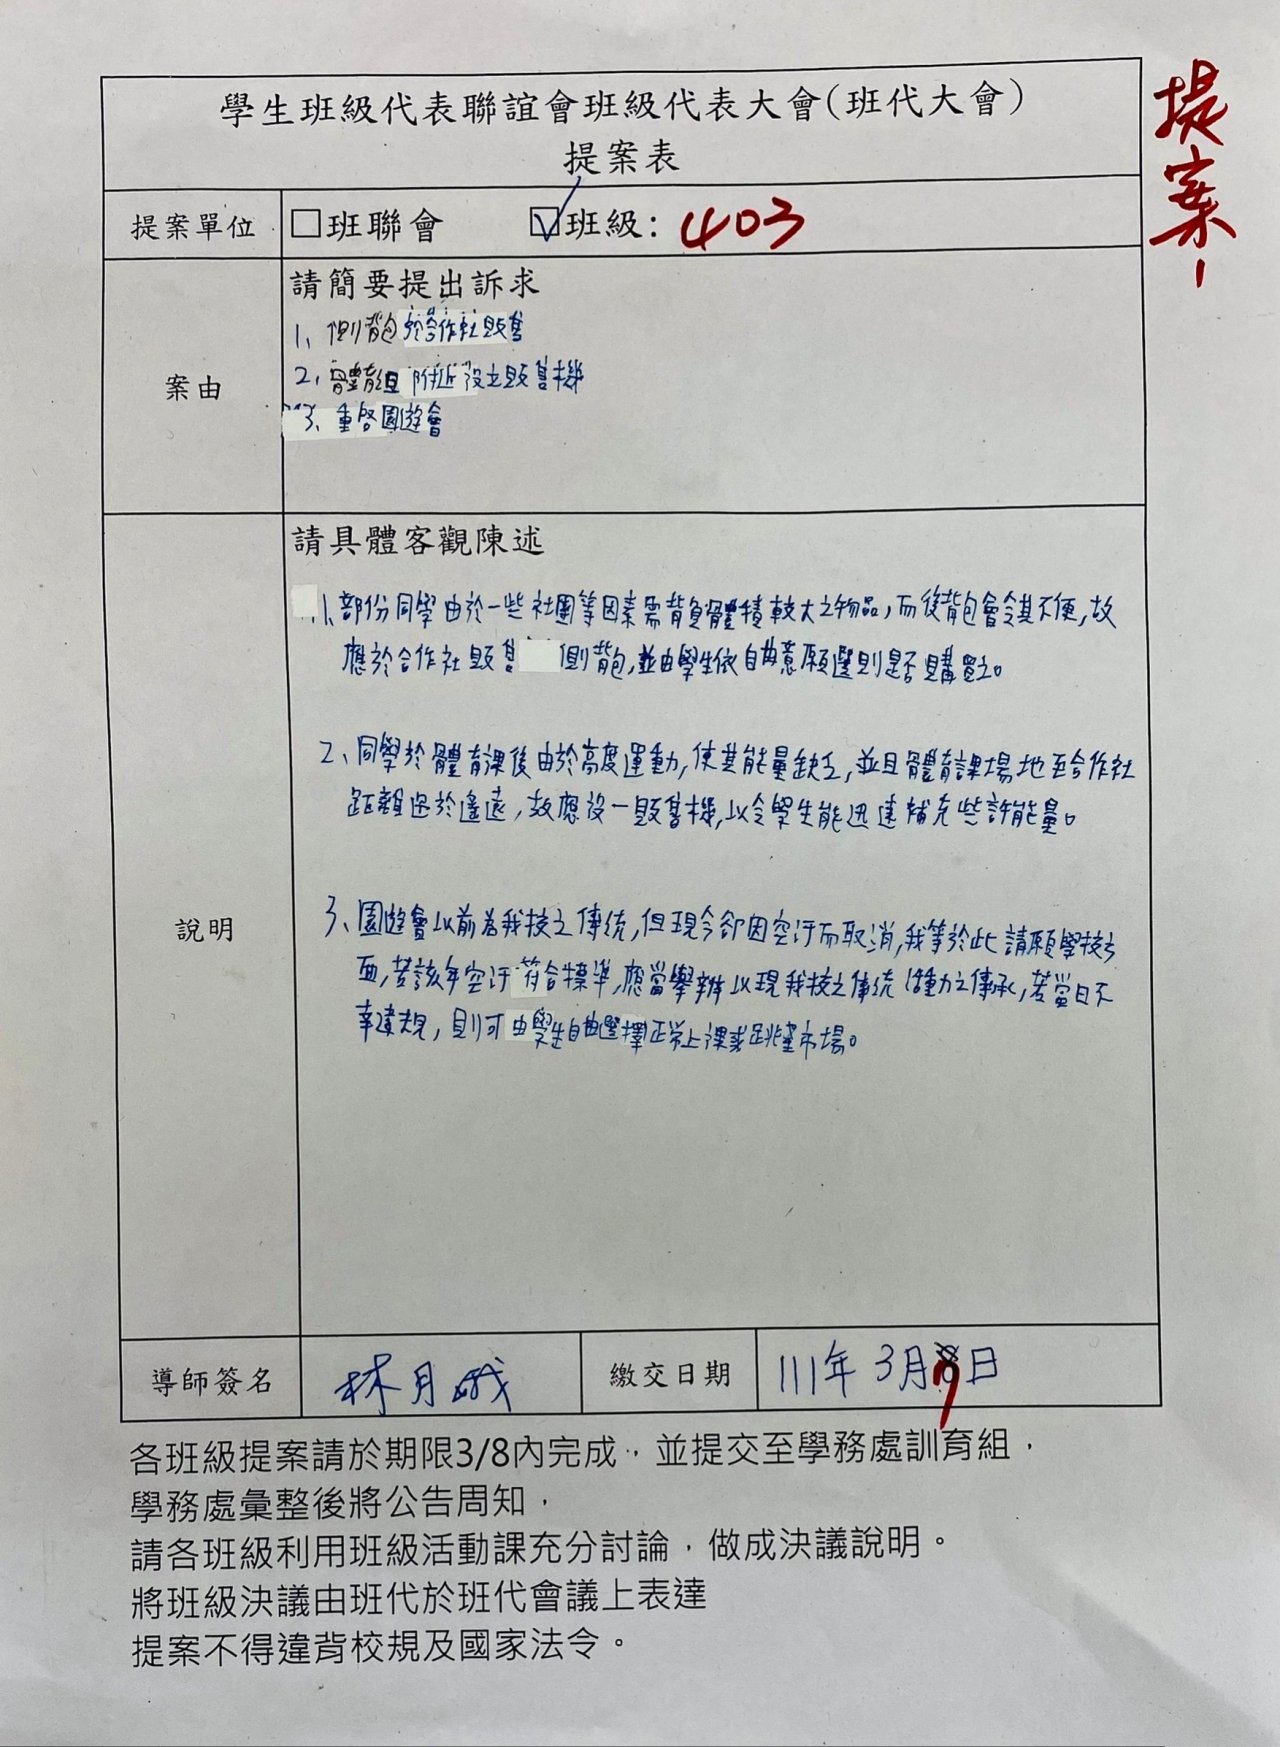 提案1
學生班級代表聯誼會班級代表大會(班代大會)
提案表
提案單位 □班聯會 ☑班級: 403
案由
請簡要提出訴求
1、側背包於合作社販售
2、體育組附近設立販售機
3、重啓園遊會
說明
請具體客觀陳述
1、部份同學由於一些社團等因素需背負體積較大之物品,而後背包會令其不便,故
應於合作社販售側背包,並由學生依自由意願選則是否購買之。
2、同學於體育課後由於高度運動,使其能量缺乏,並且體育課場地至合作社
距離過於遙遠,故應設一販售機,以令學生能迅速補充些許能量。
3、園遊會以前為我校之傳統,但現今卻因空汙而取消,我等於此請願學校方
面,若該年空汙符合標準,應當舉辦以現我校之傳統活動之傳承,若當日不
幸違規,則可由學生自由選擇正常上課或跳蚤市場。
導師簽名 林月娥 繳交日期 111年3月9日
各班級提案請於期限3/8內完成,並提交至學務處訓育組,
學務處彙整後將公告周知,
請各班級利用班級活動課充分討論,做成決議說明。
將班級決議由班代於班代會議上表達
提案不得違背校規及國家法令。